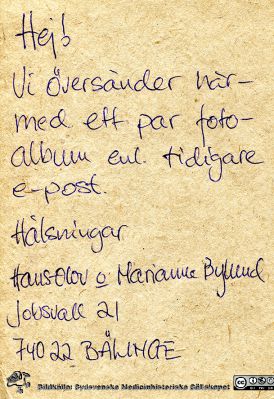 Hej!
Vi översänder här-
med ett par foto-
album enl. tidigare
e-post.
Hälsningar
Hans-Olov o Marianne Bylund
Jobsvall 21
740 22 BÄLINGE
Bildkälla: Sydsvenska Medicinhistoriska Sällskapet